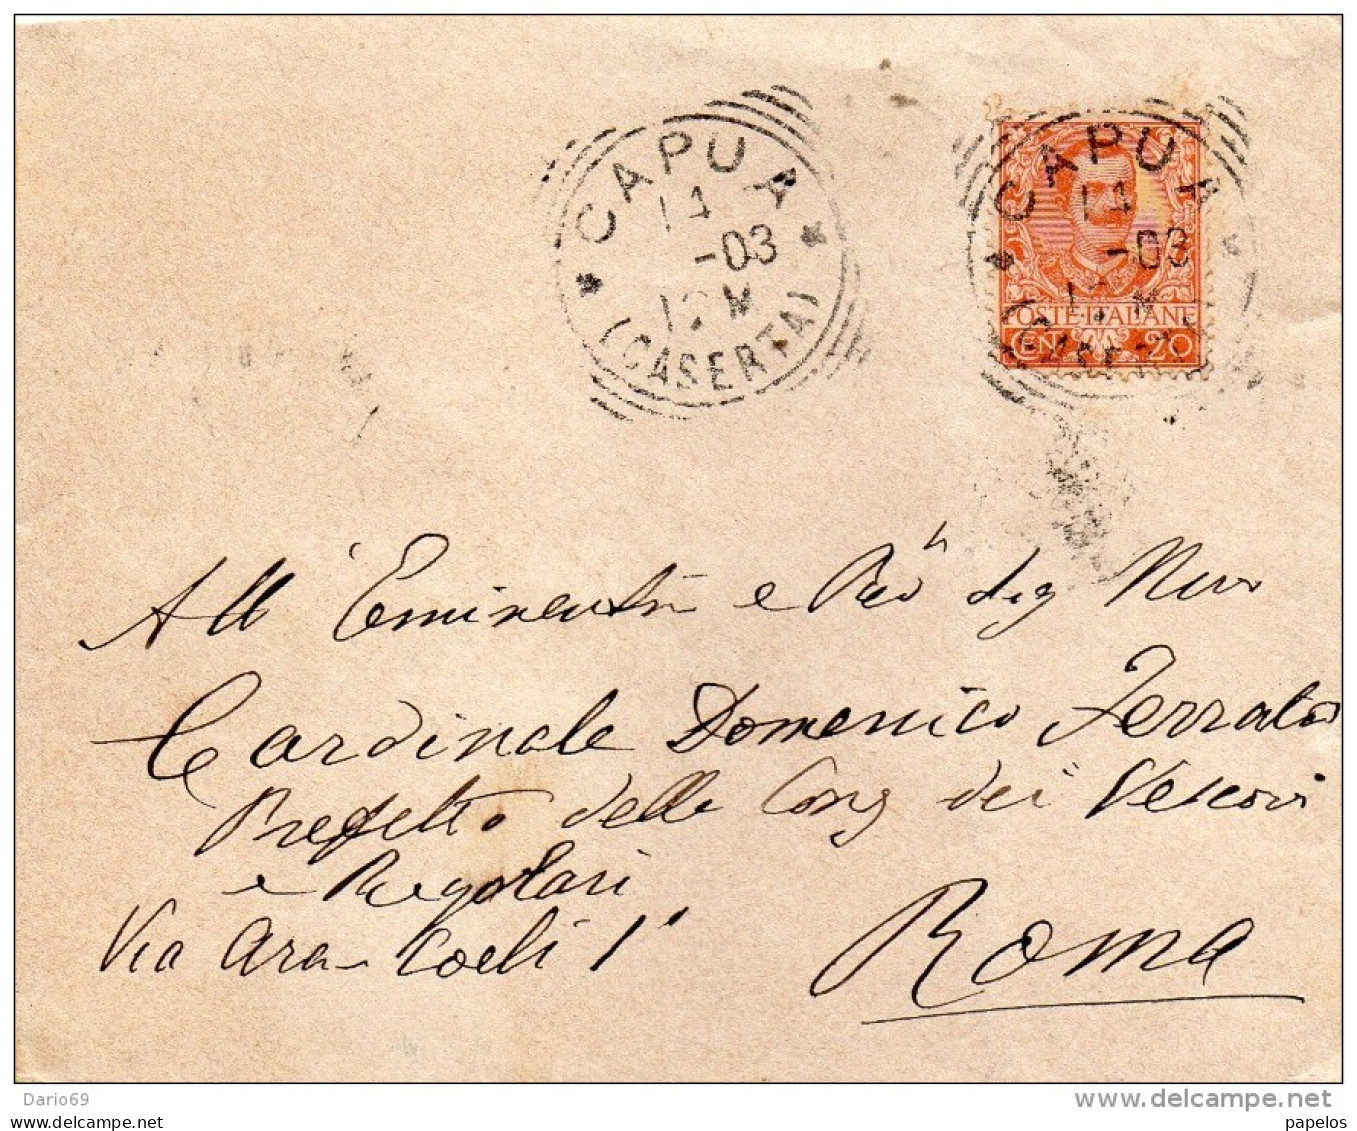 CAPUA
14
-03
12 M
(CASERTA)
CAPUA
14
-03
POSTE·ITALIANE
CENT 20
All' Eminentis e Rev Sig
Cardinale Domenico Ferrata
Prefetto della Cong dei Vescovi
e Regolari
Via Ara Coeli 1
Roma
Dario69
delcampe.net
papelos